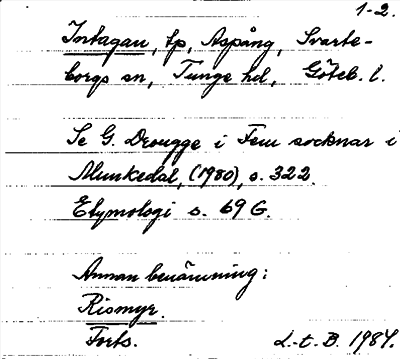 1-2.
Intagan, tp, Aspång, Svarte-
borgs sn, Tunge hd, Göteb. l.
Se G. Drougge i Fem socknar i
Munkedal, (1980), s. 322.
Etymologi s. 69 G.
Annan benämning:
Rismyr.
Forts.
L-t. B. 1984.